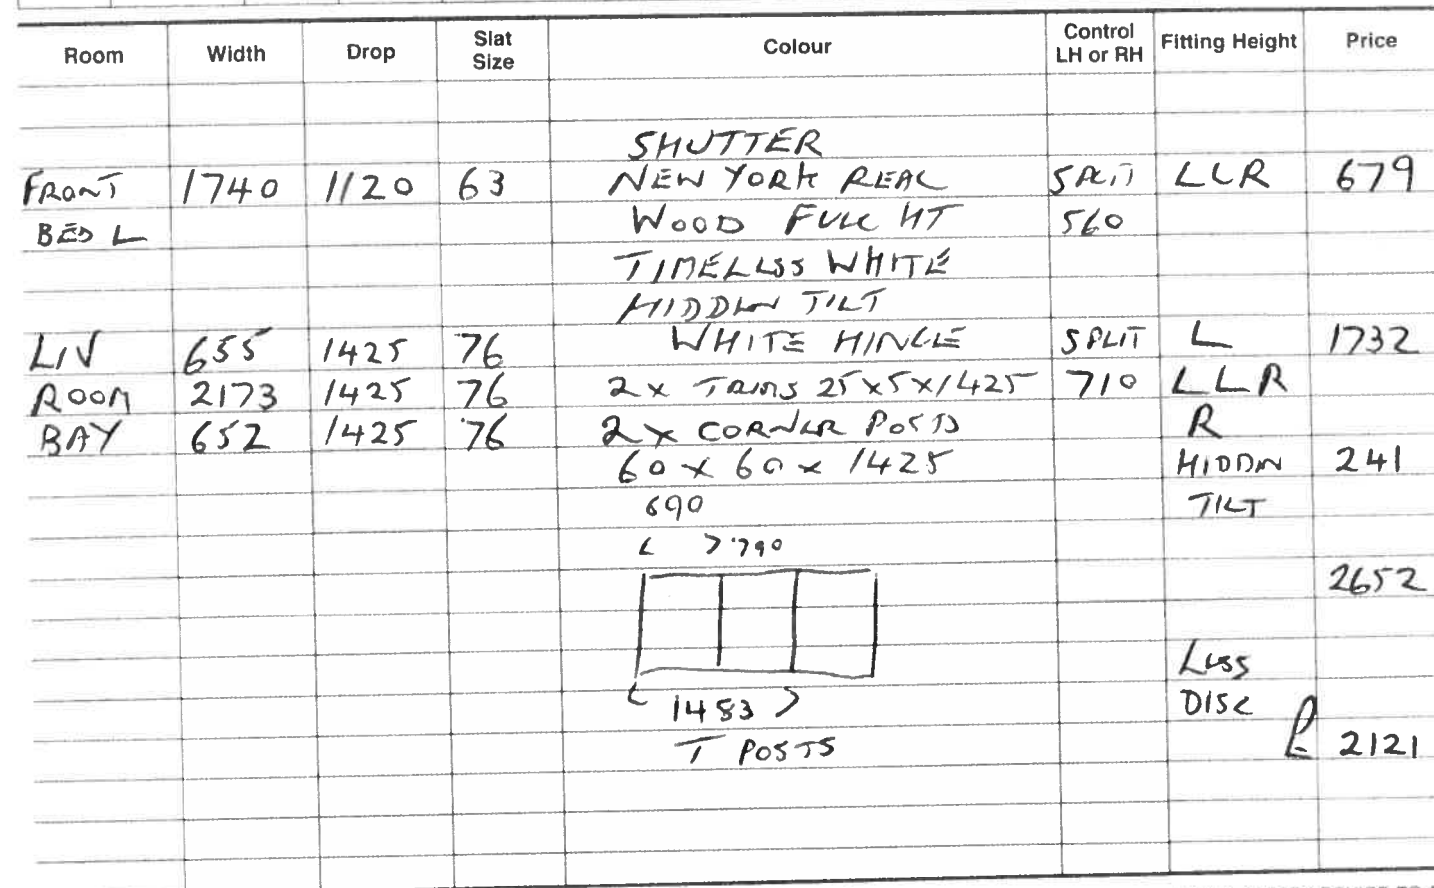 Room Width Drop Slat Size Colour Control LH or RH Fitting Height Price
SHUTTER
FRONT 1740 1120 63 NEW YORK REAL SPLIT LLR 679
BED L WOOD FULL HT 560
TIMELESS WHITE
HIDDEN TILT
LIV 655 1425 76 WHITE HINGE SPLIT L 1732
ROOM 2173 1425 76 2 x TRIMS 25x5x1425 710 LLR
BAY 652 1425 76 2 x CORNER POSTS R
60 x 60 x 1425 HIDDEN 241
690 TILT
< > 790
2652
LESS
< 1483 > DISC
T POSTS £ 2121